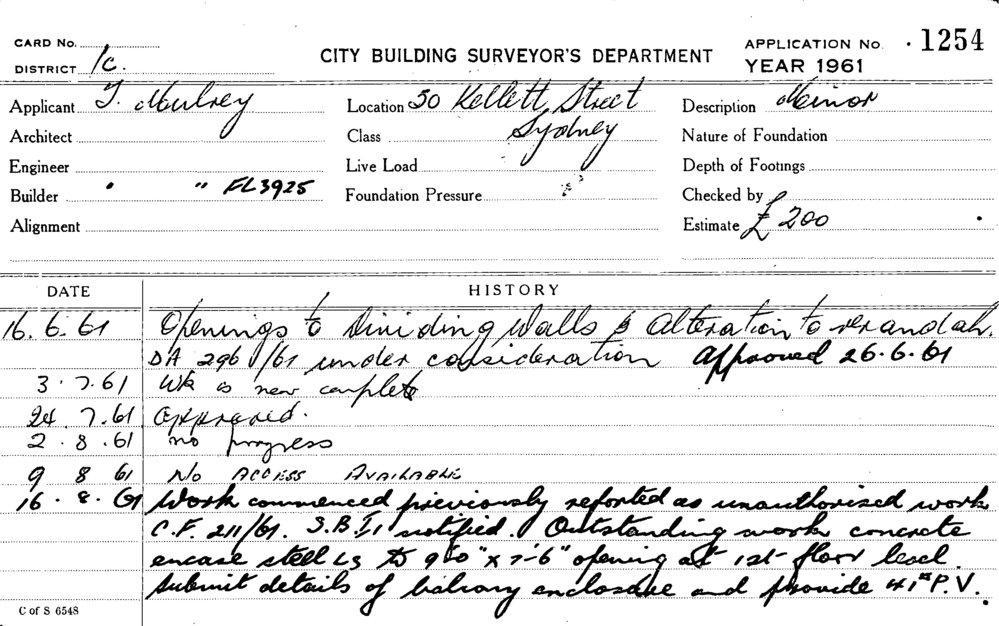 CARD No.
DISTRICT 1c.
CITY BUILDING SURVEYOR'S DEPARTMENT
APPLICATION No. 1254
YEAR 1961
Applicant T. Mulvey
Location 50 Kellett Street
Description Minor
Architect
Class Sydney
Nature of Foundation
Engineer
Live Load
Depth of Footings
Builder " " FL3925
Foundation Pressure
Checked by
Alignment
Estimate £ 200
DATE HISTORY
16.6.61 Openings to Dividing Walls & Alteration to verandah.
DA 296/61 under consideration Approved 26.6.61
3.7.61 Wk is now complete
24.7.61 Approved.
2.8.61 no progress
9 8 61 No ACCESS AVAILABLE
16.8.61 Work commenced previously reported as unauthorised work
C.F. 211/61. S.B.I. notified. Outstanding work concrete
encase steel Ls to 9'0" x 7'-6" opening at 1st floor level.
Submit details of balcony enclosure and provide P.V.
C of S 6548